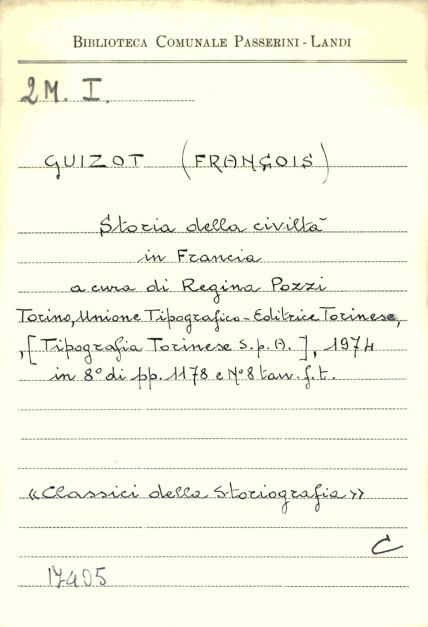 BIBLIOTECA COMUNALE PASSERINI-LANDI
2M. I.
GUIZOT (FRANÇOIS)
Storia della civiltà
in Francia
a cura di Regina Pozzi
Torino, Unione Tipografico-Editrice Torinese,
,[Tipografia Torinese S.p.A.], 1974
in 8° di pp. 1178 e N° 8 tav. f.t.
«Classici della Storiografia»
C
17495